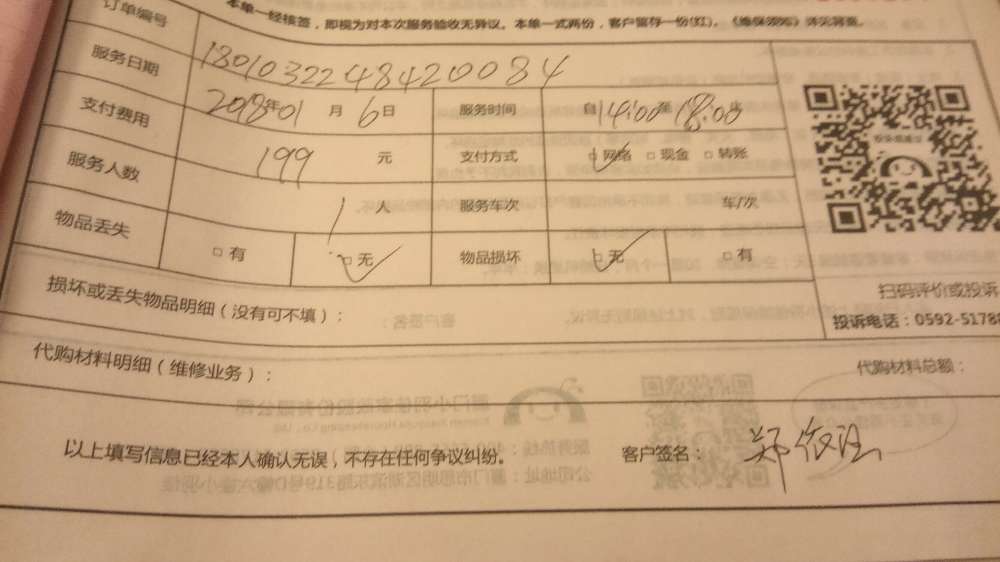 本单一经接签，即视为对本次服务验收无异议。本单一式两份，客户留存一份(红)。
订单编号 1801032248420084
服务日期 2018年01月6日 服务时间 自14:00至18:00止
支付费用 199元 支付方式 网络 现金 转账
服务人数 1人 服务车次 车/次
物品丢失 有 无 物品损坏 无 有
损坏或丢失物品明细（没有可不填）：
扫码评价或投诉
投诉电话：0592-51788
代购材料明细（维修业务）：
代购材料总额：
以上填写信息已经本人确认无误，不存在任何争议纠纷。
客户签名：